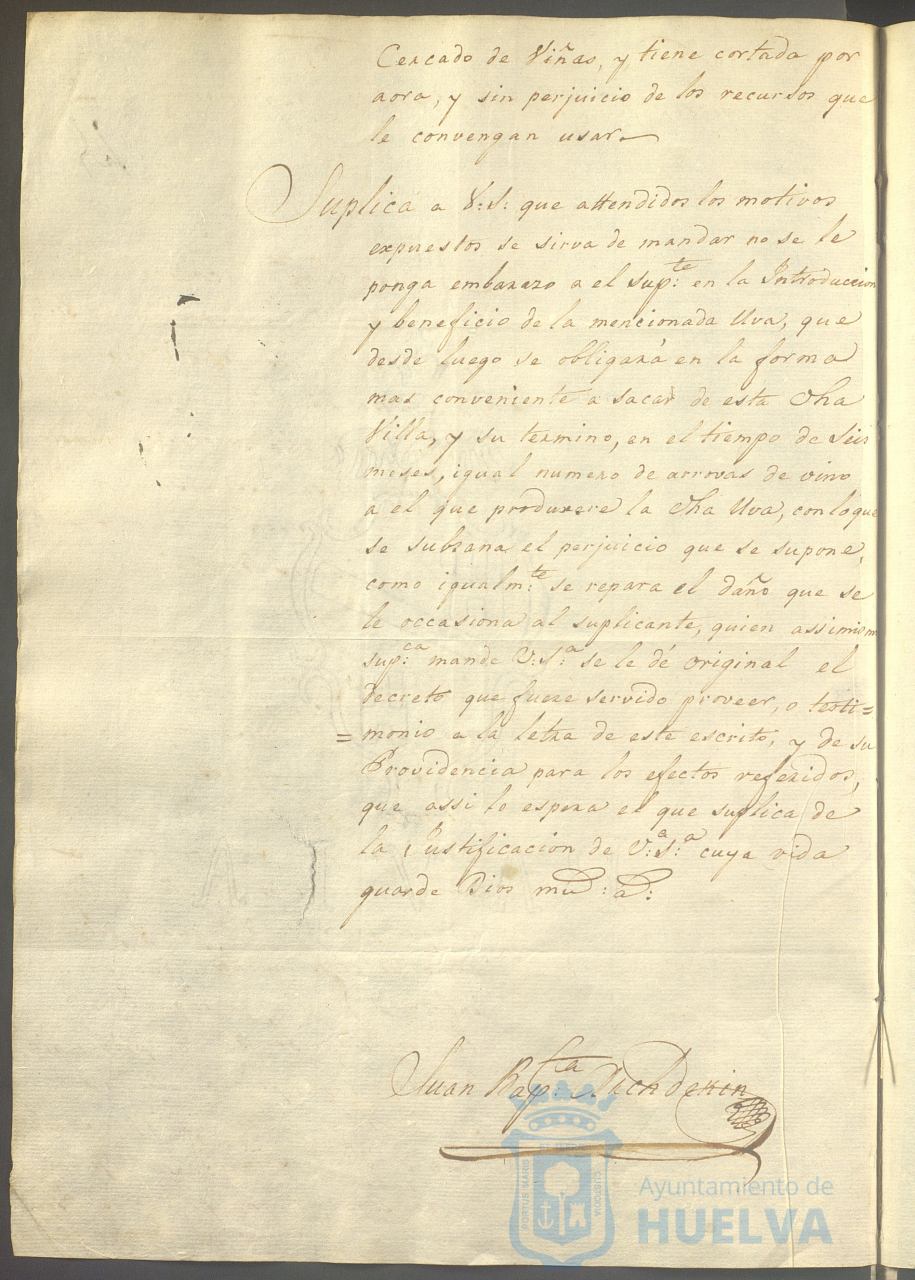 Cercado de Viñas, y tiene cortada por
aora, y sin perjuicio de los recursos que
le convengan usar
Suplica a V.S. que attendidos los motivos
expuestos se sirva de mandar no se le
ponga embarazo a el sup.te en la Introduccion
y beneficio de la mencionada Uva, que
desde luego se obligará en la forma
mas conveniente a sacar de esta dha
Villa, y su termino, en el tiempo de seis
meses, igual numero de arrovas de vino
a el que produxere la dha Uva, con lo que
se subsana el perjuicio que se supone,
como igualm.te se repara el daño que se
le occasiona al suplicante, quien assimism
sup.ca mande V.S.a se le dé original el
decreto que fuere servido proveer, o testi=
=monio a la letra de este escrito, y de su
Providencia para los efectos referidos,
que assi lo espera el que suplica de
la Justificacion de V.a S.a cuya vida
guarde Dios m.s a.s
Juan Bap.ta
PORTUS MARIS
CUSTODIA
Ayuntamiento de
HUELVA